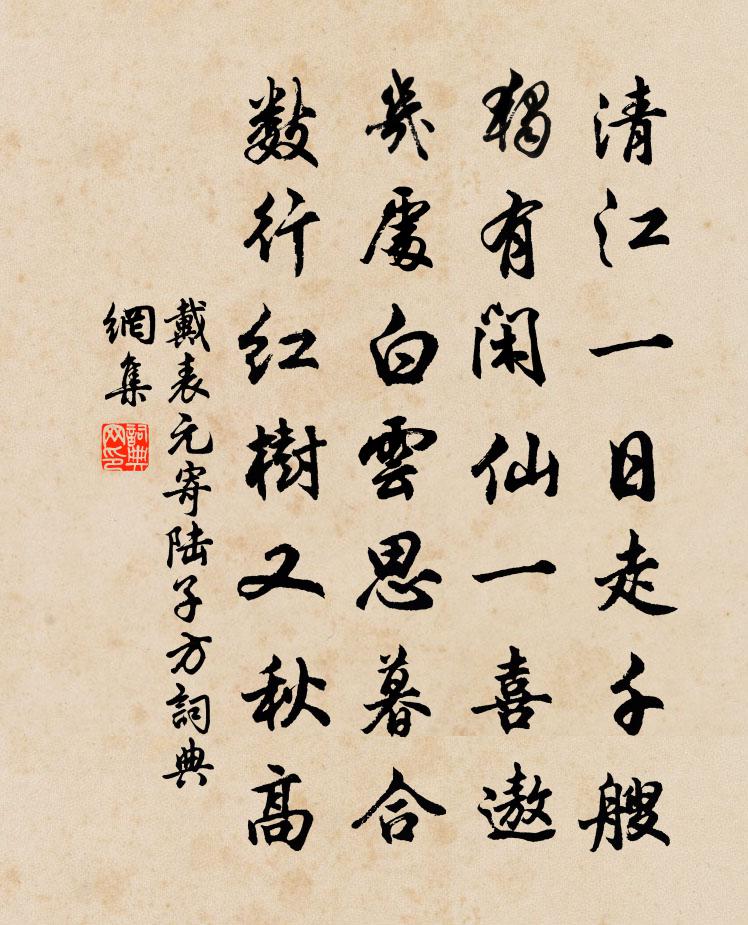 清江一日走千艘
獨有閑仙一喜遨
幾處白雲思暮合
數行紅樹又秋高
戴表元寄陆子方詞典
網集
詞典
网印